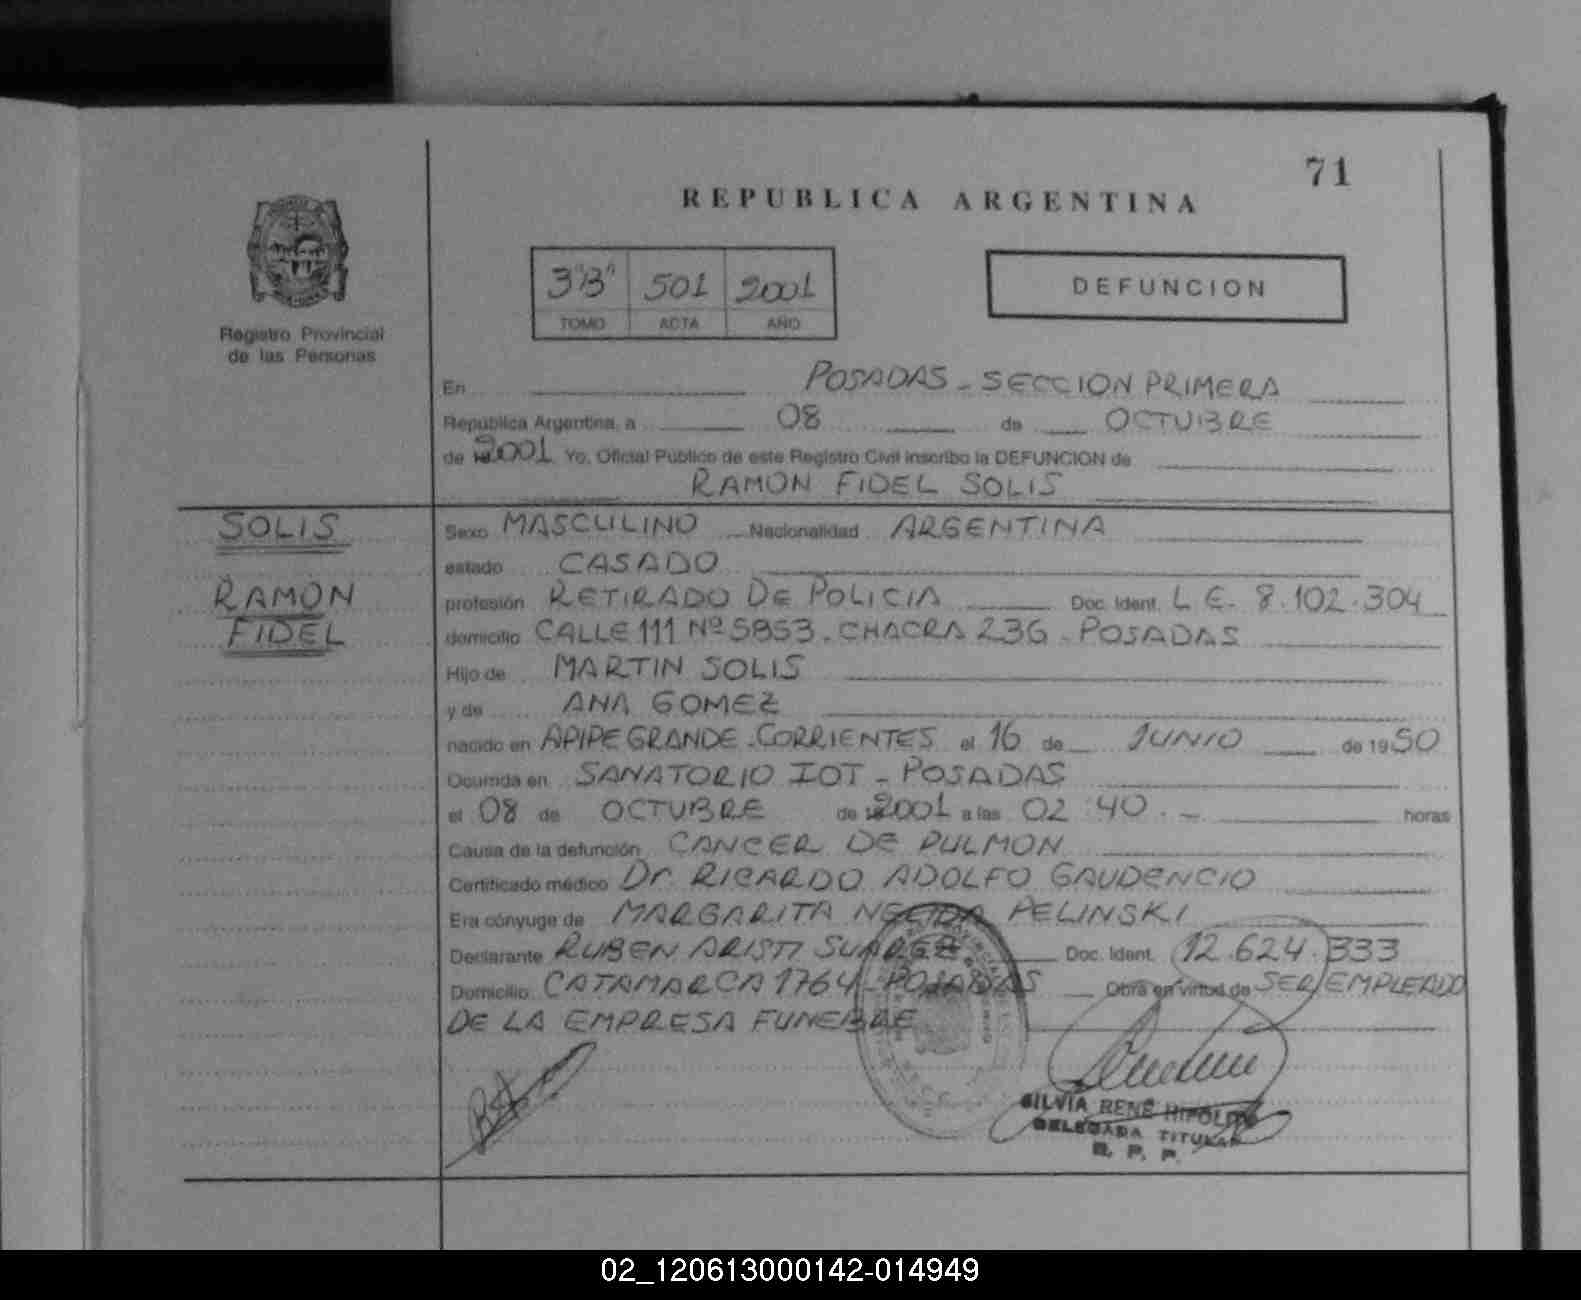 71
REPUBLICA ARGENTINA
Registro Provincial
de las Personas
3"B" 501 2001
TOMO ACTA AÑO
DEFUNCION
En POSADAS - SECCION PRIMERA
República Argentina, a 08 de OCTUBRE
de 2001 Yo, Oficial Público de este Registro Civil inscribo la DEFUNCION de
RAMON FIDEL SOLIS
SOLIS
RAMON
FIDEL
Sexo MASCULINO Nacionalidad ARGENTINA
estado CASADO
profesión RETIRADO DE POLICIA Doc. Ident. L E. 8.102.304
domicilio CALLE 111 Nº 5853. CHACRA 236 - POSADAS
Hijo de MARTIN SOLIS
y de ANA GOMEZ
nacido en APIPE GRANDE - CORRIENTES el 16 de JUNIO de 1950
Ocurrida en SANATORIO IOT - POSADAS
el 08 de OCTUBRE de 2001 a las 02:40.- horas
Causa de la defunción CANCER DE PULMON
Certificado médico Dr. RICARDO ADOLFO GAUDENCIO
Era cónyuge de MARGARITA PELINSKI
Declarante RUBEN ARISTI SUAREZ Doc. Ident. 12.624.333
Domicilio CATAMARCA 1764 - POSADAS Obra en virtud de SER EMPLEADO
DE LA EMPRESA FUNEBRE
SILVIA RENÉ HIPOLITO
DELEGADA TITULAR
R. P. P.
02_120613000142-014949